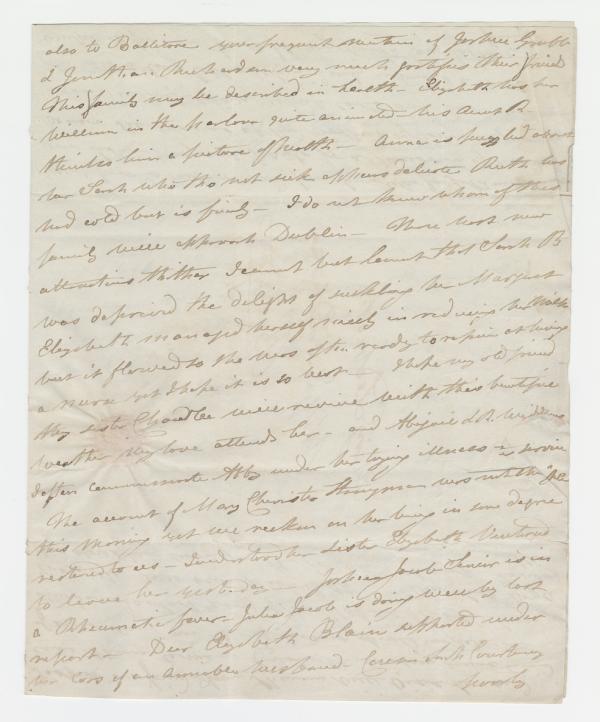 also to Ballitore your frequent mention of Joshua Grubb
& Jonathan Richardson very much fortifies their friend
This family may be described in health – Elizabeth has her
William in the parlour quite animated – his Aunt R
thinks him a picture of health – Anna is puzzled about
her Sarah who tho not sick appears delicate Ruth has
had cold but is finely – I do not know whom of this
family will approach Dublin – There are now
attractions thither I cannot but lament that Sarah B
was deprived the delight of suckling her Margaret
Elizabeth managed herself nicely in reducing her Milk
but it flowed to the last ready to repine at having
a nurse yet I hope it is so best – I hope my old friend
thy sister Chandlee will revive with this beautiful
weather my love attends her – and Abigail
I often commemorate Abby under her trying illness
The account of Mary Christy Hangman was not the
this morning yet we reckon on her being in some degree
restored to us – I understood her sister Elizabeth ventured
to leave her yesterday – Joshua Jacob Senior is in
a Rheumatic fever – Julia Jacob is doing well by last
report – Dear Elizabeth Blain supported under
her loss of an Amiable husband – Cousin Courtenay